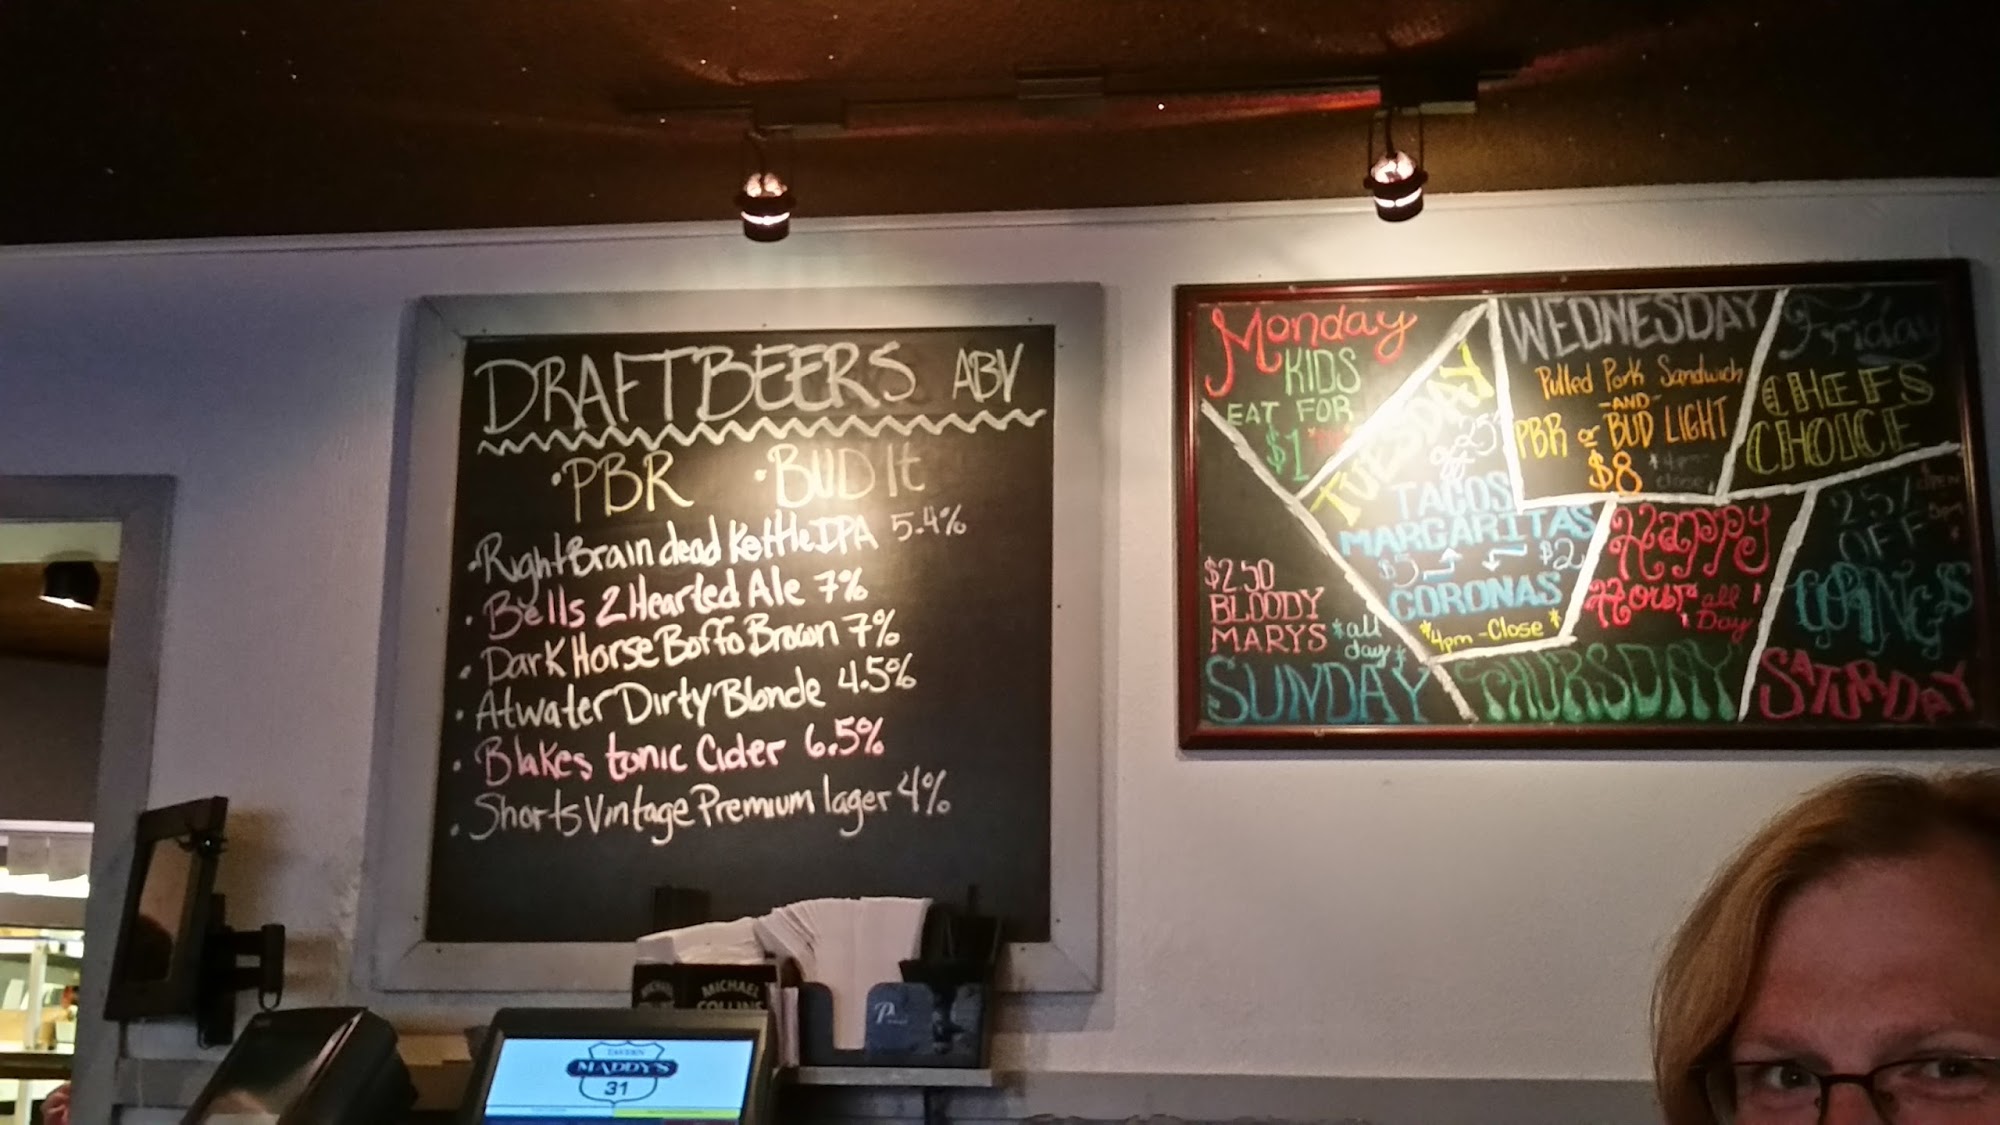 DRAFT BEERS ABV
• PBR • BUD lt
• Right Brain dead Kettle IPA 5.4%
• Bells 2 Hearted Ale 7%
• Dark Horse Boffo Brown 7%
• Atwater Dirty Blonde 4.5%
• Blakes tonic Cider 6.5%
• Shorts Vintage Premium lager 4%
Monday
KIDS
EAT FOR
$1
TUESDAY
25¢
TACOS
MARGARITAS
$5 $2
CORONAS
*4pm - Close*
WEDNESDAY
Pulled Pork Sandwich
-AND-
PBR or BUD LIGHT
$8 *4pm
close*
Friday
CHEFS
CHOICE
$2.50
BLOODY
MARYS *all
day*
SUNDAY
Happy
Hour all
Day
THURSDAY
25%
OFF
SATURDAY
MICHAEL
COLLINS
TAVERN
MADDY'S
31